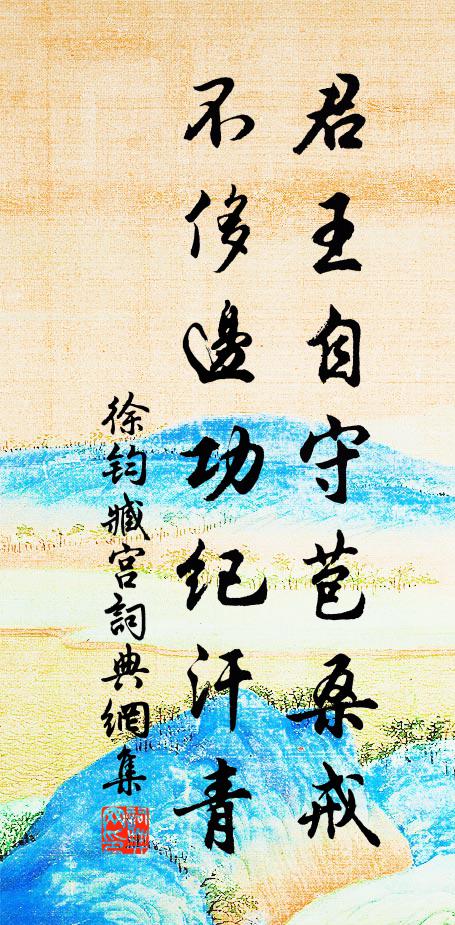 君王自守苞桑戒
不侈邊功纪汗青
徐鈞臧宮詞典網集